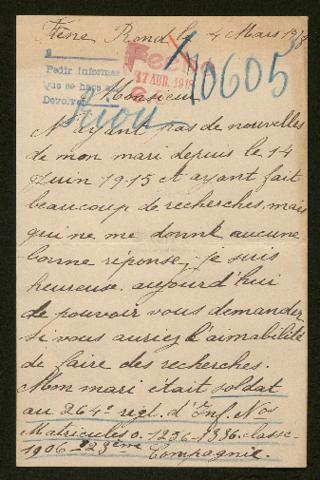 Rond le 4 Mars 1918
Fecha
17 ABR. 1918
10605
Pedir informes
que se hace
Devolver
Monsieur
N'ayant pas de nouvelles
de mon mari depuis le 14
Juin 1915 et ayant fait
beaucoup de recherches, mais
qui ne me donne aucune
bonne réponse, je suis
heureuse aujourd'hui
de pouvoir vous demander
si vous auriez l'aimabilité
de faire des recherches.
Mon mari était soldat
au 264e regt. d'Inf. Nos
Matricules 0.1236-1386. classe
1906 - 23ème Compagnie.